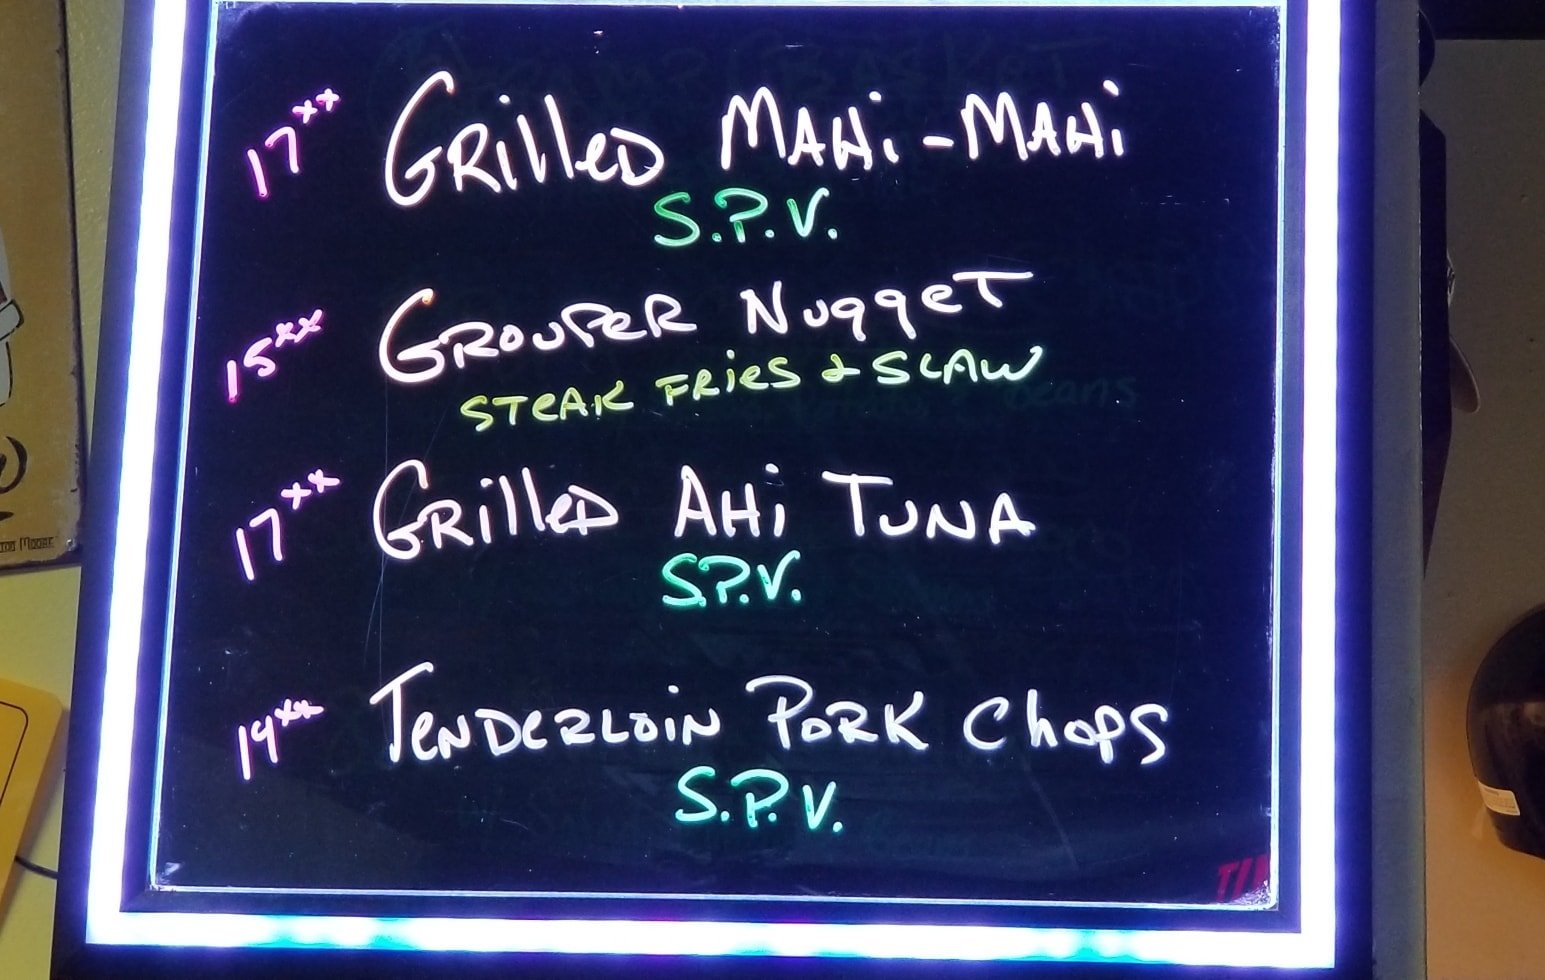 17xx GRilleD MAHi-MAHi
S.P.V.
15xx GROUPeR NuggeT
STeAK FRieS & SLAW
17xx GRilleD AHi TUNA
S.P.V.
19xx TeNDeRLoiN PoRK Chops
S.P.V.